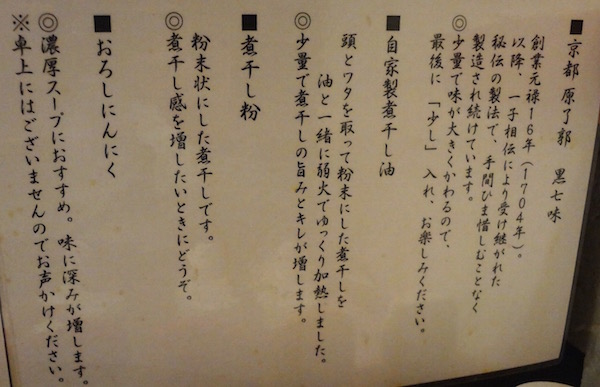 ■京都 原了郭 黒七味
創業元禄16年(1704年)。
以降、一子相伝により受け継がれた
秘伝の製法で、手間ひま惜しむことなく
製造され続けています。
◎少量で味が大きくかわるので、
最後に「少し」入れ、お楽しみください。
■自家製煮干し油
頭とワタを取って粉末にした煮干しを
油と一緒に弱火でゆっくり加熱しました。
◎少量で煮干しの旨みとキレが増します。
■煮干し粉
粉末状にした煮干しです。
◎煮干し感を増したいときにどうぞ。
■おろしにんにく
◎濃厚スープにおすすめ。味に深みが増します。
※卓上にはございませんのでお声かけください。